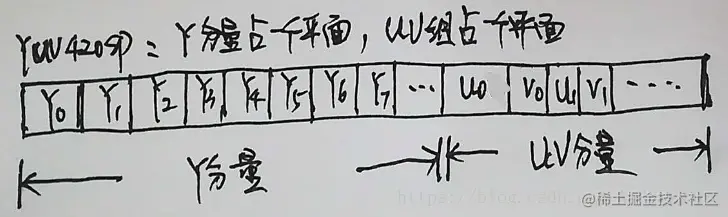 YUV420SP：Y分量占一个平面，UV组占一个平面
Y0 Y1 Y2 Y3 Y4 Y5 Y6 Y7 ... U0 V0 U1 V1 ....
Y分量 UV分量
@稀土掘金技术社区